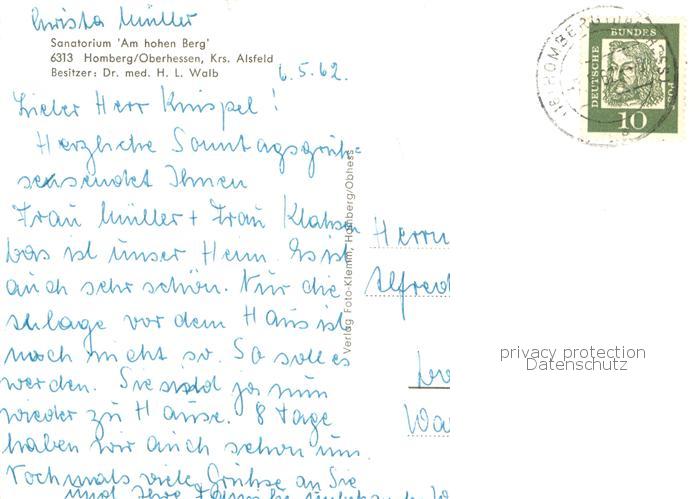 Christa Müller
Sanatorium 'Am hohen Berg'
6313 Homberg/Oberhessen, Krs. Alsfeld
Besitzer: Dr. med. H. L. Walb
6.5.62.
Lieber Herr Knispel!
Herzliche Sonntagsgrüh-
se sendet Ihnen
Frau Müller + Frau
Das ist unser Heim. Es ist
auch sehr schön. Nur die
Anlage vor dem Haus ist
noch nicht so. So soll es
werden. Sie sind ja nun
wieder zu Hause. 8 Tage
haben wir auch schon um.
Nochmals viele Grühse an Sie
und Ihre
Verlag Foto-Klemm, Homberg/Obhess.
Herrn
Alfred
DEUTSCHE BUNDESPOST
10
HOMBERG
privacy protection
Datenschutz